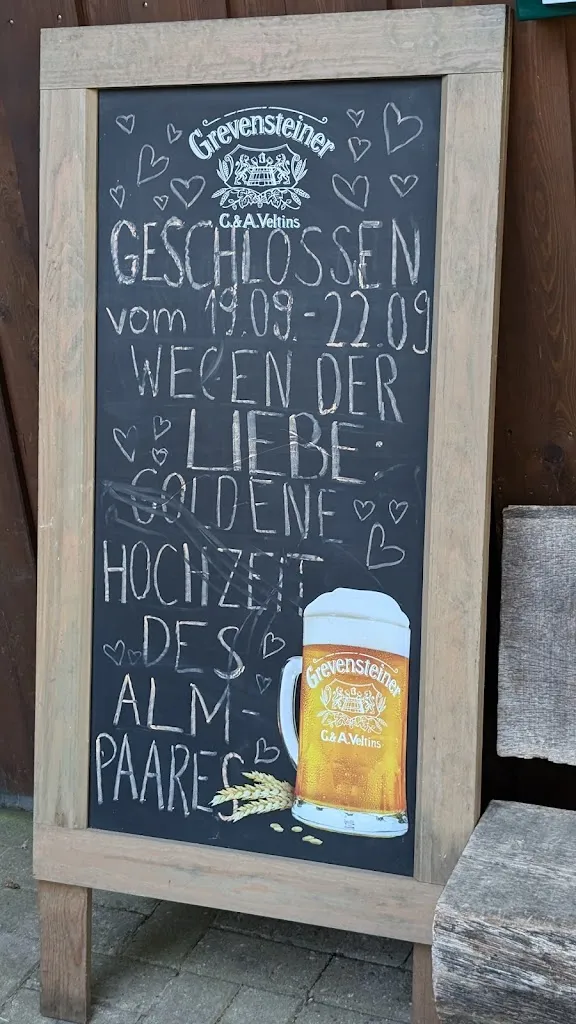 Grevensteiner
C. & A. Veltins
GESCHLOSSEN
vom 19.09. - 22.09
WEGEN DER
LIEBE
GOLDENE
HOCHZEIT
DES
ALM-
PAARES
Grevensteiner
C. & A. Veltins